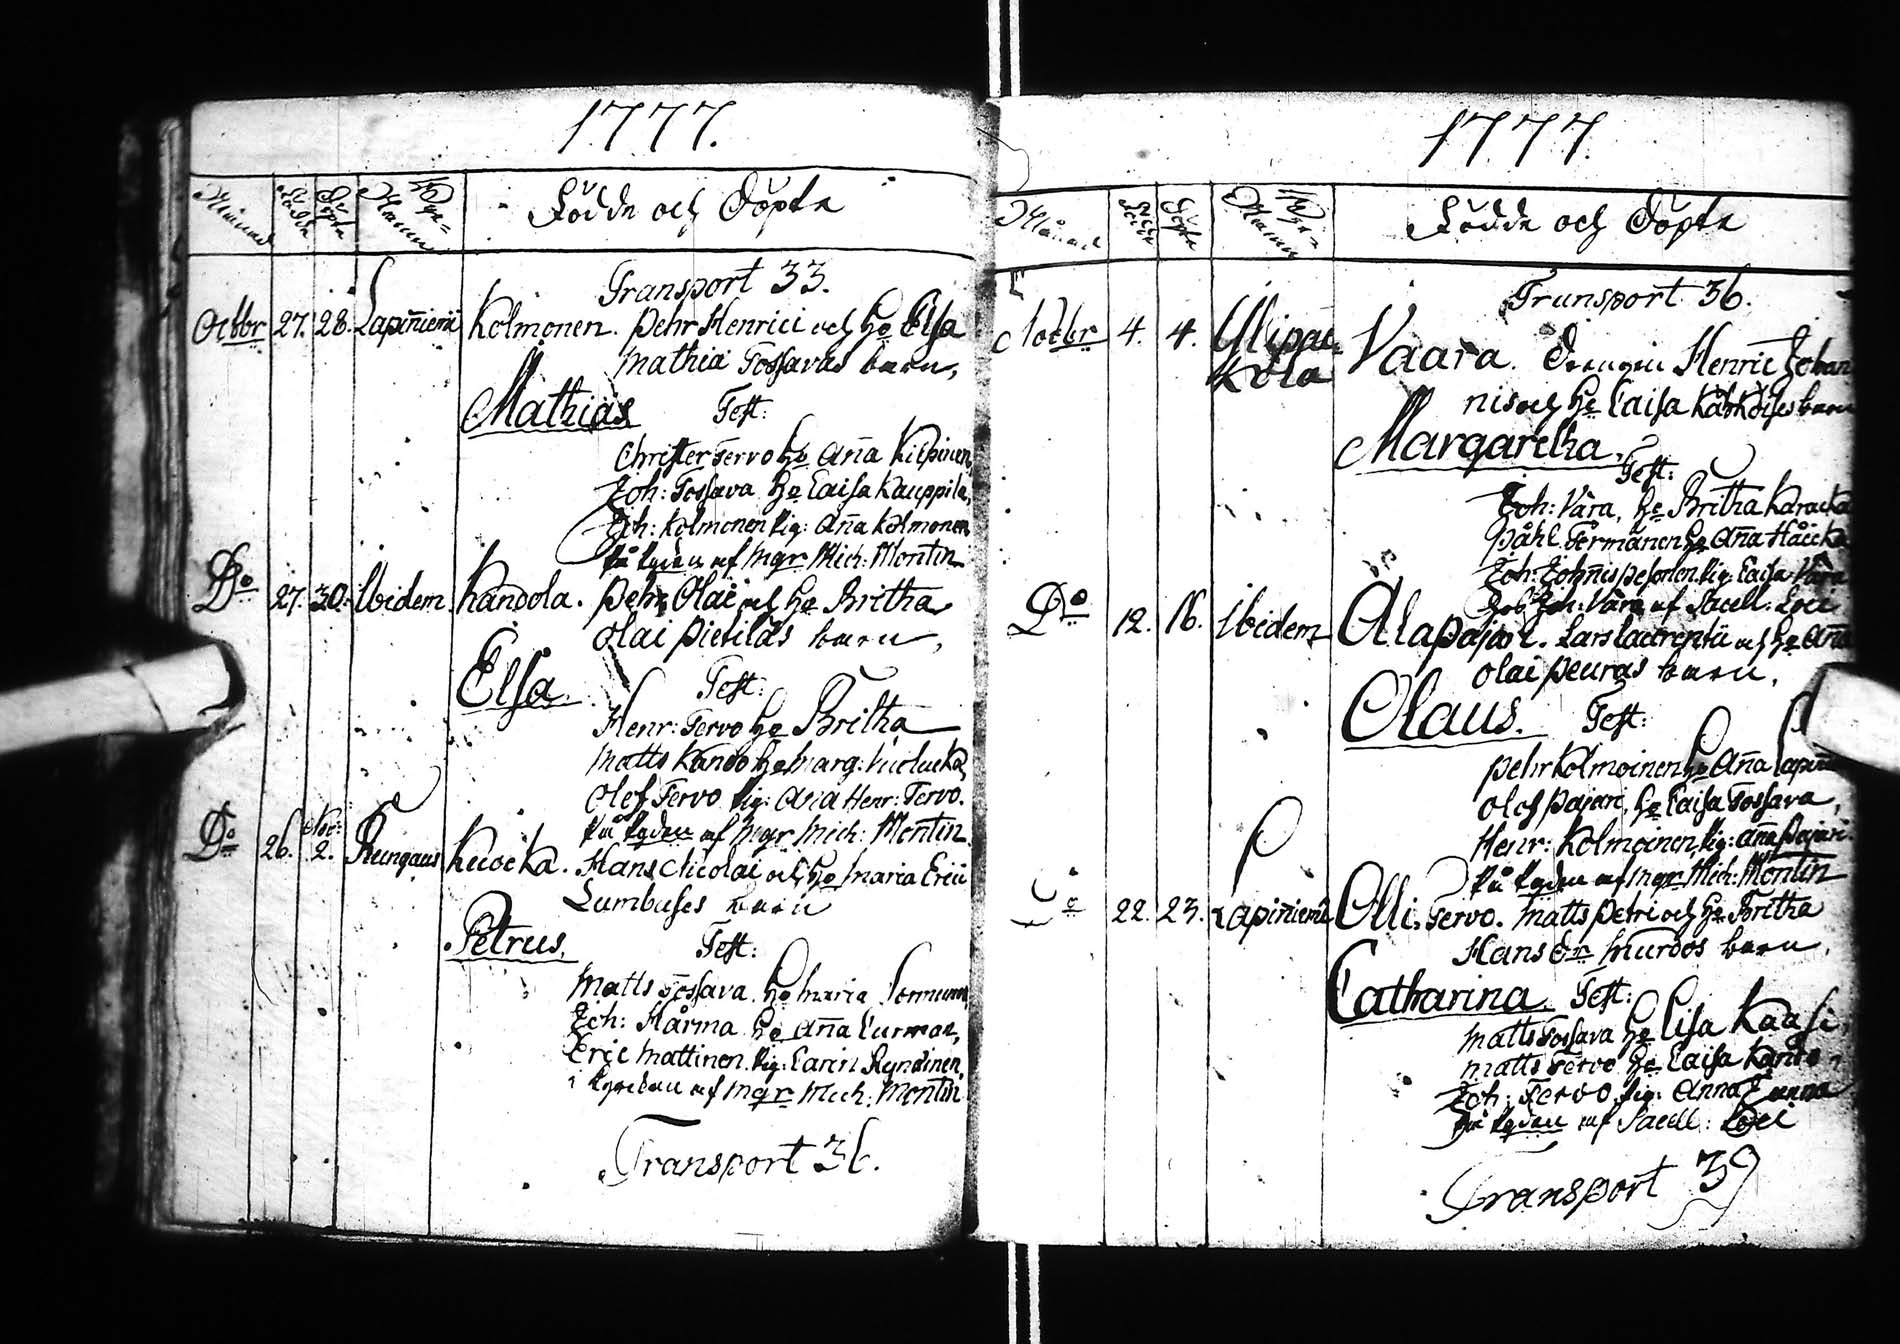 1777.
Månad
Födde
Döpte
Byarnas Namn
Födde och Döpte
Transport 33.
Octbr 27. 28. Lapiniemi Kolmonen. Pehr Henrici och Ho Elsa
Mathiæ Tossavas barn,
Mathias Test:
Christer Tervo Ho Aña Kilpinen,
Joh: Tossava Ho Caisa Kauppila,
Joh: Kolmonen Pig: Aña Kolmonen
af Mgr Mich: Montin
Do 27. 30. Ibidem Kandola. Pehr Olai och Ho Britha
Olai Pietiläs barn,
Elsa. Test:
Henr: Tervo Ho Britha
Matts Kando Ho Marg:
Olof Tervo Pig: Aña Henr: Tervo.
af Mgr Mich: Montin
Do 26. Nov: 2. Kungaus Kuocka. Hans Nicolai och Ho Maria Erici
Lumbuses barn
Petrus. Test:
Matts Tossava Ho Maria
Joh: Härmä Ho Aña Turman,
Eric Mattinen Pig: Carin Ryndinen,
i kyrckan af Mgr Mich: Montin
Transport 36.
1777.
Månad
Födde
Döpte
Byarnas Namn
Födde och Döpte
Transport 36.
Novbr 4. 4. Vaara. Drengen Henric Johan
nis och Ho Caisa barn
Margaretha. Test:
Joh: Vara, Ho Britha Karacka
Påhl Termänen Ho Aña
Joh: Pig: Caisa Vara
Joh: Vara af Sacell: Loci
Do 12. 16. Ibidem Alapajari. Lars Laurentii och Ho Aña
Olai Peuras barn,
Olaus. Test:
Pehr Kolmoinen Ho Aña
Olof Pajari, Ho Caisa Tossava,
Henr: Kolmoinen, Pig: Aña Pajari.
af Mgr Mich: Montin
Do 22. 23. Lapiniemi Olli. Tervo. Matts Petri och Ho Britha
Hans Dr Murdos barn,
Catharina. Test:
Matts Tossava Ho Lisa Kaasi,
Matts Tervo Ho Caisa Kando,
Joh: Tervo Pig: Anna
af Sacell: Loci
Transport 39